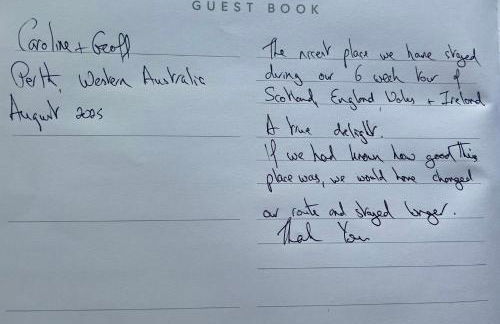 GUEST BOOK
Caroline + Geoff
Perth, Western Australia
August 2025
The nicest place we have stayed
during our 6 week tour of
Scotland England, Wales + Ireland
A true delight.
If we had known how good this
place was, we would have changed
our route and stayed longer.
Thank You